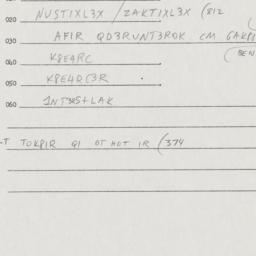 020 NUSTIXL3X / ZAKTIXL3X (812
030 AFIR QD3RUNT3ROK CM GAKP
(BEN
040 K8E4RC
050 K8E4DC3R
060 1NT3S+LAK
T TOKPIR QI OT HOT IR (374